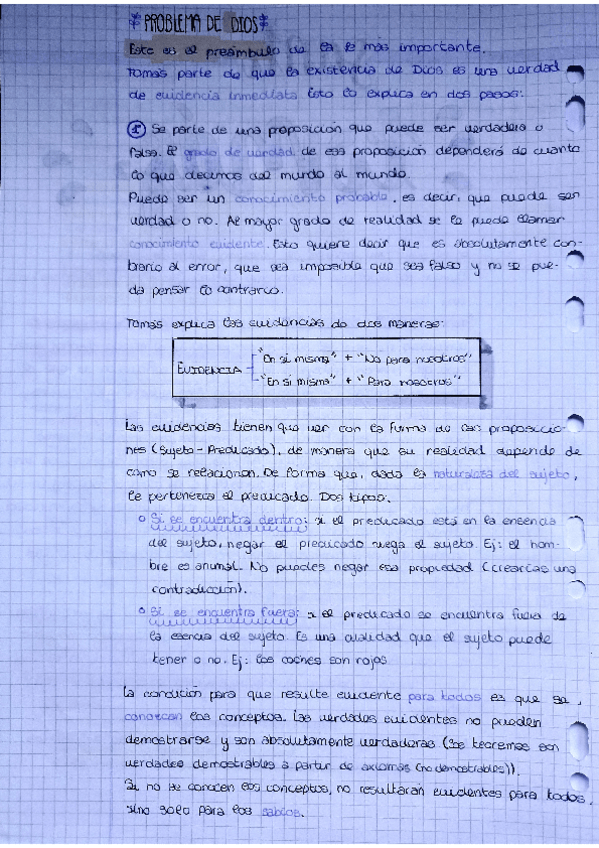 * PROBLEMA DE DIOS *
Este es el preámbulo de la fe más importante.
Tomás parte de que la existencia de Dios es una verdad
de evidencia inmediata. Esto lo explica en dos pasos:
1º Se parte de una proposición que puede ser verdadera o
falsa. El grado de verdad de esa proposición dependerá de cuanto
lo que decimos del mundo al mundo.
Puede ser un conocimiento probable, es decir, que puede ser
verdad o no. Al mayor grado de realidad se le puede llamar
conocimiento evidente. Esto quiere decir que es absolutamente con-
trario al error, que sea imposible que sea falso y no se pue-
da pensar lo contrario.
Tomás explica las evidencias de dos maneras:
"En sí misma" + "No para nosotros"
EVIDENCIA
"En sí misma" + "Para nosotros"
Las evidencias tienen que ver con la forma de las proposicio-
nes (Sujeto - Predicado), de manera que su realidad depende de
como se relacionan. De forma que, dada la naturaleza del sujeto,
le pertenezca el predicado. Dos tipos:
o Si se encuentra dentro: si el predicado está en la esencia
del sujeto, negar el predicado niega el sujeto. Ej: el hom-
bre es animal. No puedes negar esa propiedad (crearías una
contradicción).
o Si se encuentra fuera: si el predicado se encuentra fuera de
la esencia del sujeto. Es una cualidad que el sujeto puede
tener o no. Ej: los coches son rojos
La condición para que resulte evidente para todos es que se
conozcan los conceptos. Las verdades evidentes no pueden
demostrarse y son absolutamente verdaderas (los teoremas son
verdades demostrables a partir de axiomas (no demostrables)).
Si no se conocen los conceptos, no resultaran evidentes para todos,
sino solo para los sabios.